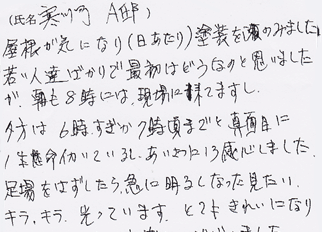 (氏名 寒川町 A邸)
屋根が気になり(日あたり)塗装を頼のみました
若い人達ばかりで最初はどうなのと思いました
が、朝も8時には、現場に来てますし、
夕方は6時すぎか7時頃までと真面目に
一生懸命働いているし、あいさつに感心しました。
足場をはずしたら、急に明るくなった見たい、
キラ、キラ、光っています。とてもきれいになり